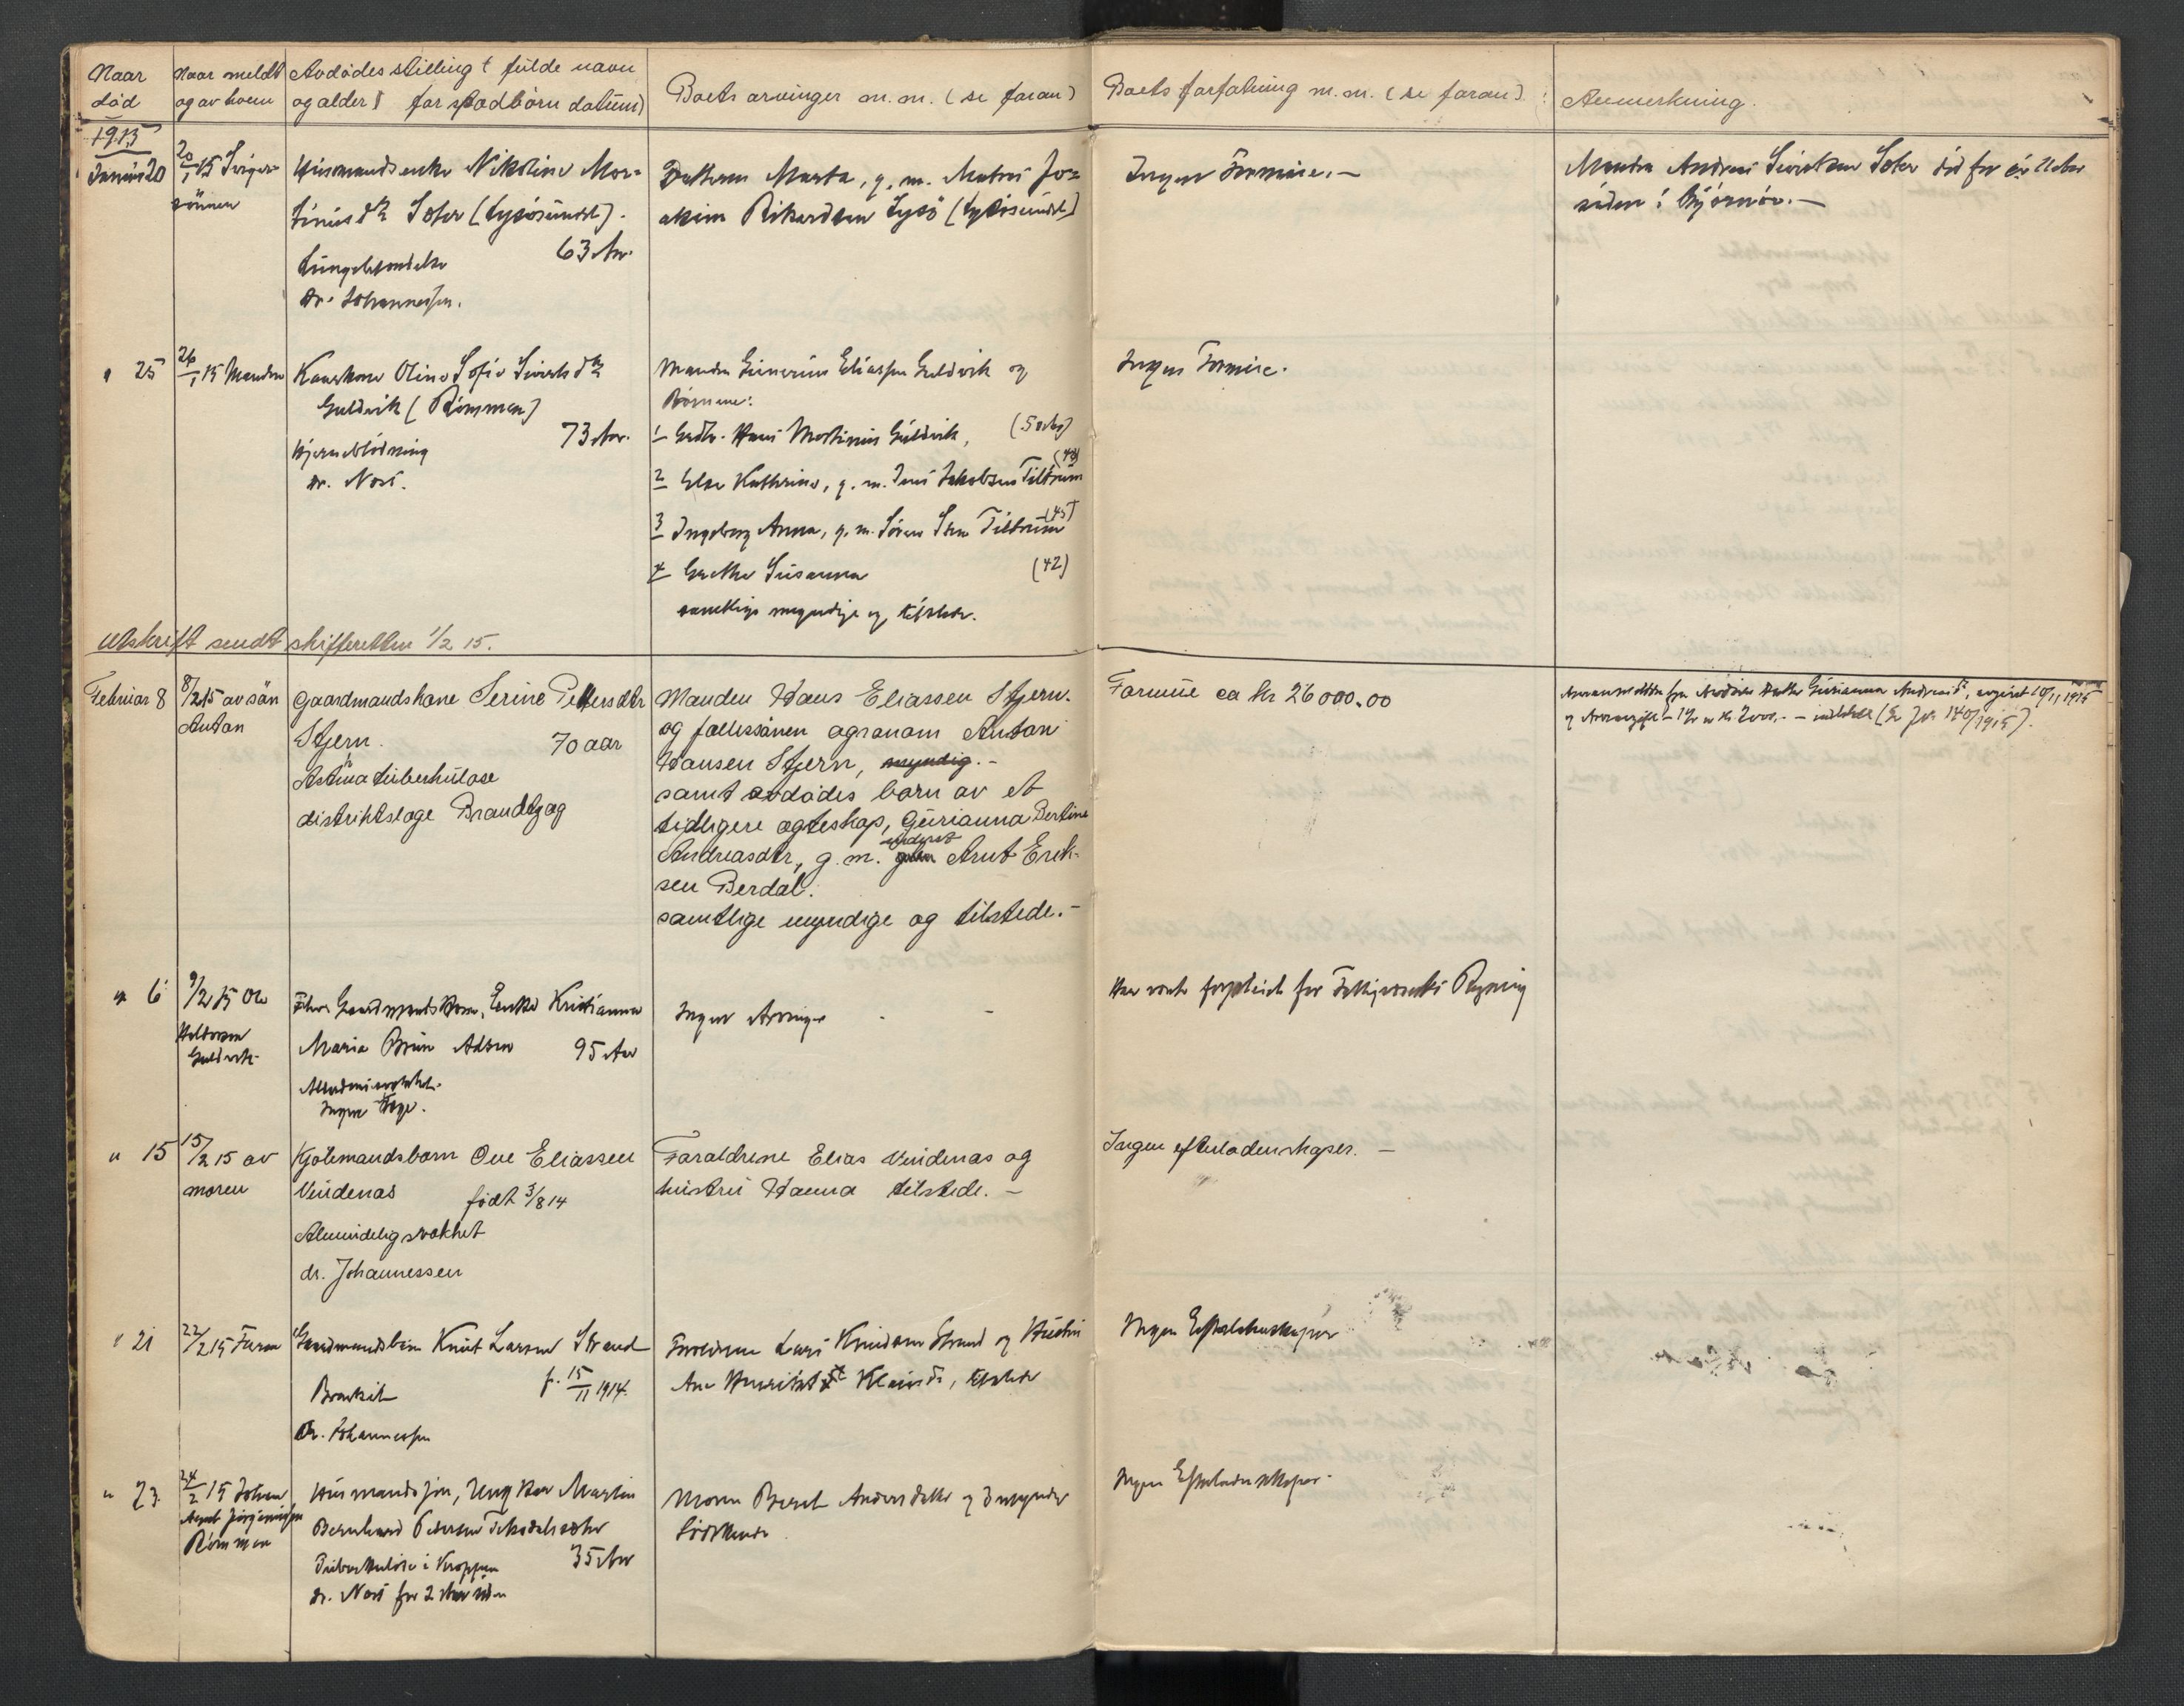 Naar
död
Naar meldt
og av hvem
Avdödes stilling, fulde navn
og alder (for spædbörn datum)
Boets arvinger m.m. (se foran)
Boets forfatning m.m. (se foran)
Anmerkning.
1915
Januar 20
20/1 15
sönnen
Husmandsenke Nikoline Mor-
tinusdtr Soter (Lysösundet).
63 Aar
Lungebetændelse
Dr. Johannessen.
Datteren Marta, g. m. Joa-
akim Rikardsen Lysö (Lysösundet)
Ingen Formue. —
Manden Andreas Sivertsen Soter död for
siden i Bjørnör. —
" 25
26/1 15 Manden
Kaarkone Oline Sofie Sivertsdtr
Guldvik (Römmen)
73 Aar.
Hjerneblödning
Dr. Noss.
Manden Gunerius Eliassen Guldvik og
Börnene:
1 Gudbr. Hans Martinus Guldvik, (50 Aar)
2 Else Kathrine, g. m. Jens Jakobsen Tiltrum (48)
3 Ingeborg Anna, g. m. Sören Tiltrum (45)
4 Grethe Susanna (42)
samtlige myndige og tilstede.
Ingen Formue.
Utskrift sendt skifteretten 1/2 15.
Februar 8
8/2 15 av sön
Anton
Gaardmandskone Serine Pettersdtr
Stjern.
70 aar
Astma tuberkulose
distriktslæge Brandtzæg
Manden Hans Eliassen Stjern.
og fællessönen agronom Anton
Hansen Stjern, myndig. —
samt avdödes barn av et
tidligere egteskap, Gurianna Bertine
Andreasdtr, g. m. Arnt Erik-
sen Berdal.
samtlige myndige og tilstede. —
Formue ca kr 26000.00
Avdödes Datter Gurianna Andreasdtr, avgivet 10/11 1915
" 6
9/2 15 Ole
Guldvik
Gaardmandskone, Enke Kristianna
Maria Brun Adsen 95 Aar
Alderdomssvakhet.
Ingen Læge.
Ingen Arvinge
Har været forpleiet for Fattigvæsenets Regning
" 15
15/2 15 av
moren
Kjölemandsbarn Ove Eliassen
Vindenas född 3/8 14
Almindelig svakhet
dr. Johannessen
Forældrene Elias Vindenas og
hustru Hanna tilstede. —
Ingen efterladenskaper. —
" 21
22/2 15 Faren
Gaardmandsbarn Knut Larsen Strand
f. 15/11 1914.
Bronkit
Dr. Johannessen
Forældrene Lars Knudsen Strand og Hustru
Ane, tilstede
Ingen Efterladenskaper
" 23.
24/2 15 Johan
Arnt Jörgensen
Römmen
Husmandssön, Ungkar Martin
Bernhard Petersen
35 Aar
Tuberkulose i Kroppen
Dr. Noss for 2 Aar siden
Moren Beret Andersdatter og 3 myndige
Södskende
Ingen Efterladenskaper.